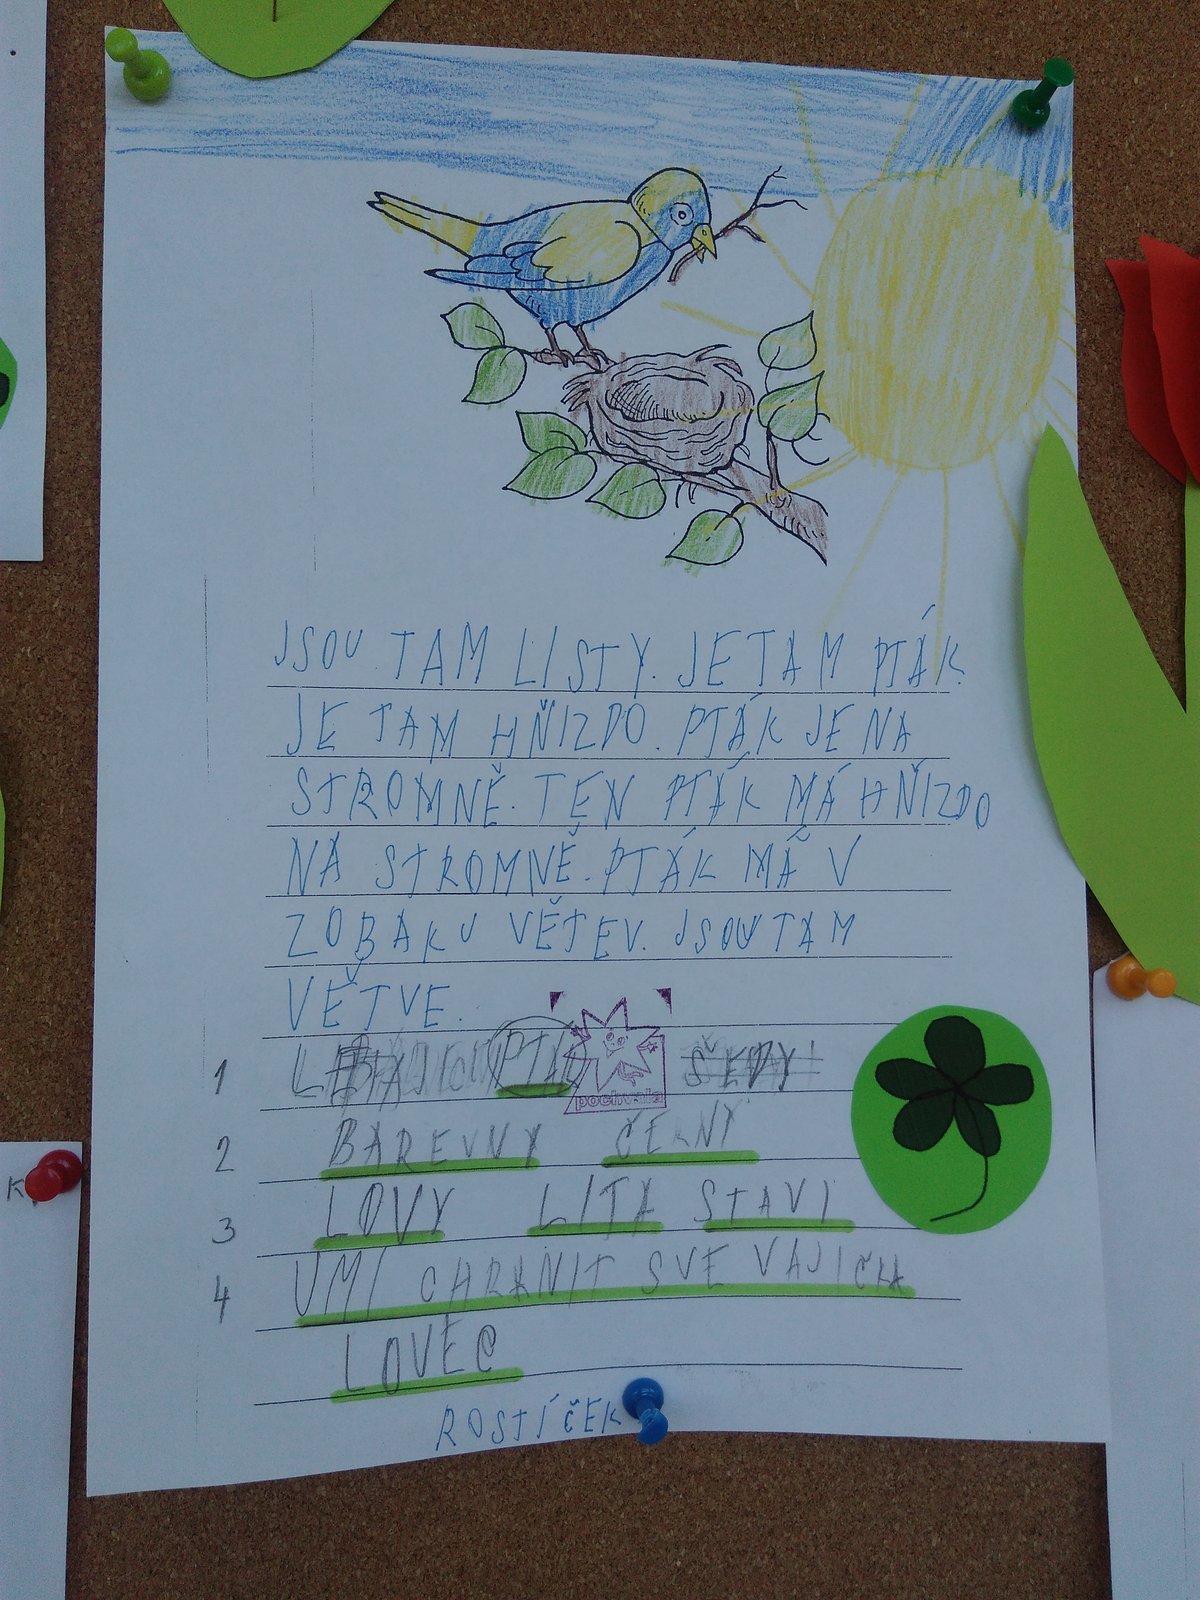 JSOU TAM LISTY. JE TAM PTÁK.
JE TAM HŇIZDO. PTÁK JE NA
STROMNĚ. TEN PTÁK MÁ HŇIZDO
NA STROMNĚ. PTÁK MÁ V
ZOBAKU VĚTEV. JSOU TAM
VĚTVE.
1 PTÁK ŠEDY
pochvala
2 BAREVNY ČERNY
3 LOVY LITA STAVI
4 UMI CHRANIT SVE VAJIČKA
LOVEC
ROSTÍČEK
K